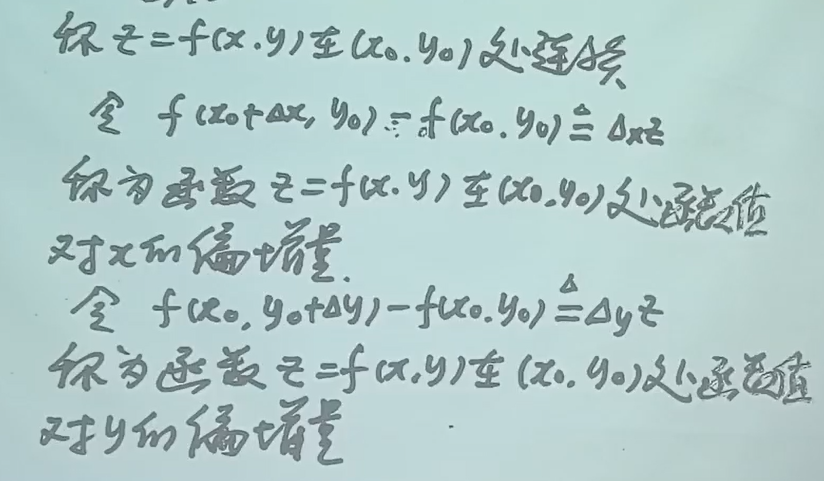 称z=f(x.y)在(x₀.y₀)处连续
令 f(x₀+Δx, y₀)-f(x₀.y₀)≜Δxz
称为函数z=f(x.y)在(x₀.y₀)处函数值
对x的偏增量.
令 f(x₀,y₀+Δy)-f(x₀.y₀)≜Δyz
称为函数z=f(x,y)在(x₀.y₀)处函数值
对y的偏增量